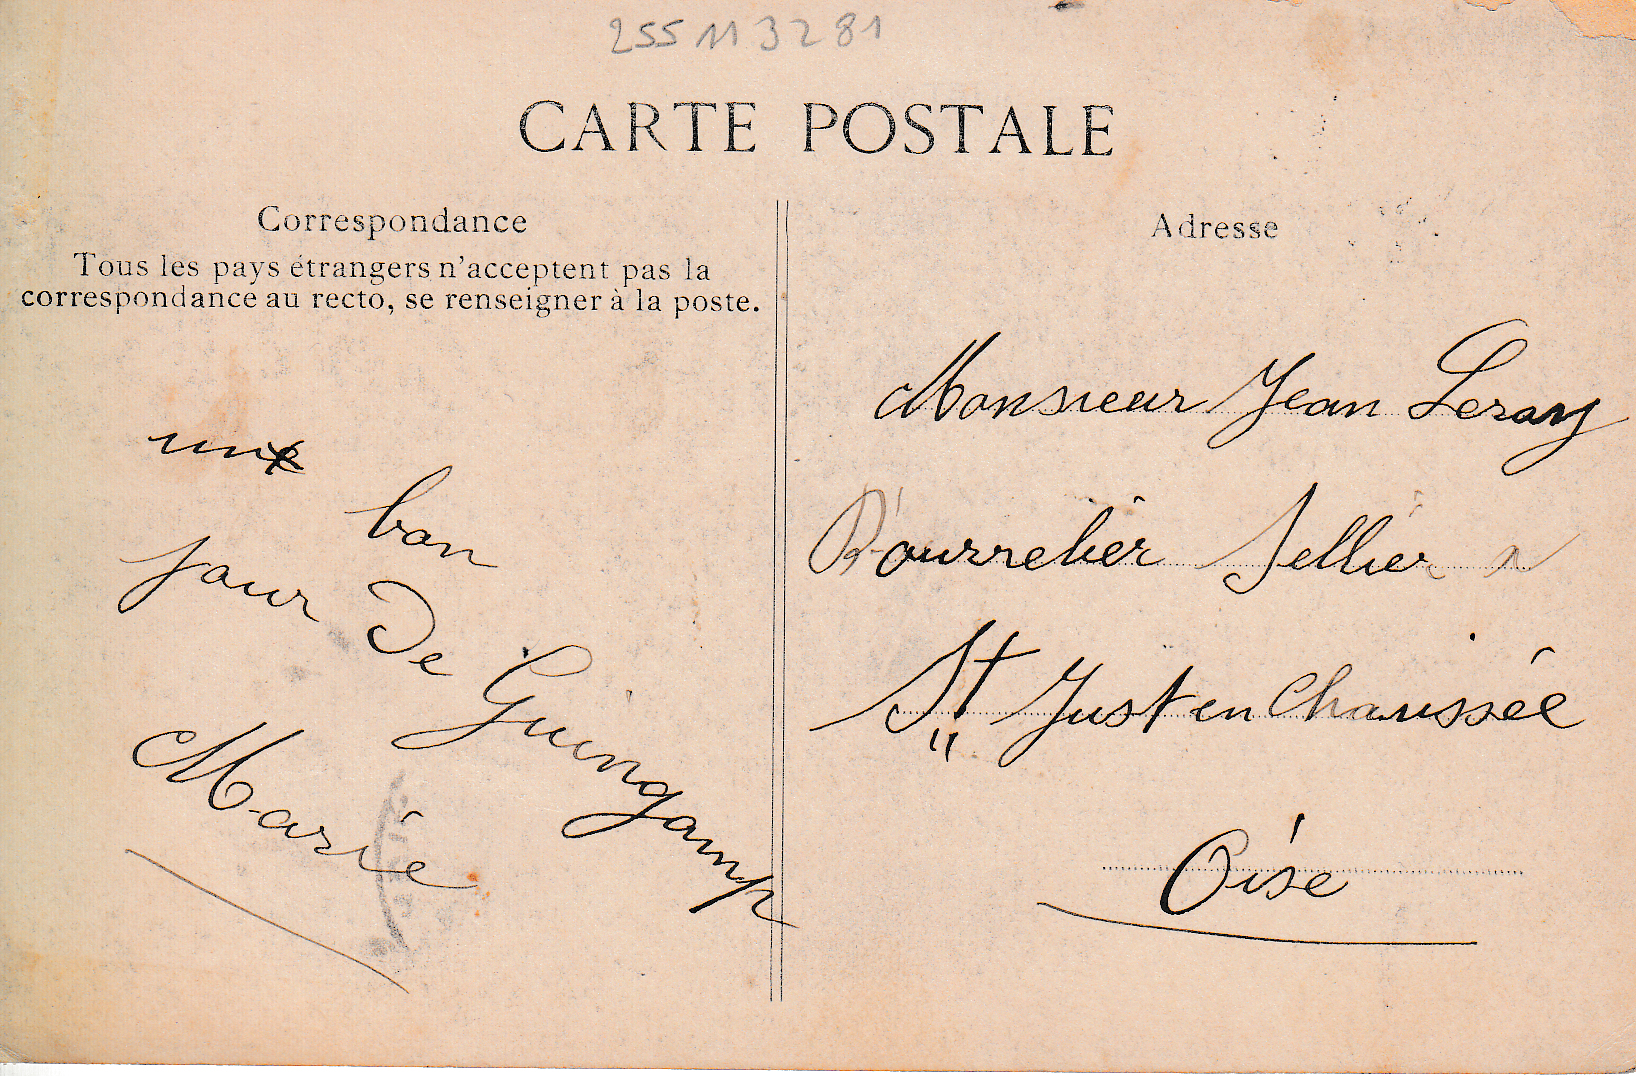 255 113281
CARTE POSTALE
Correspondance
Tous les pays étrangers n'acceptent pas la
correspondance au recto, se renseigner à la poste.
un
bon
jour De Guingamp
Marie
Adresse
Monsieur Jean Leray
Bourrelier Sellier a
St Just en Chaussée
Oise